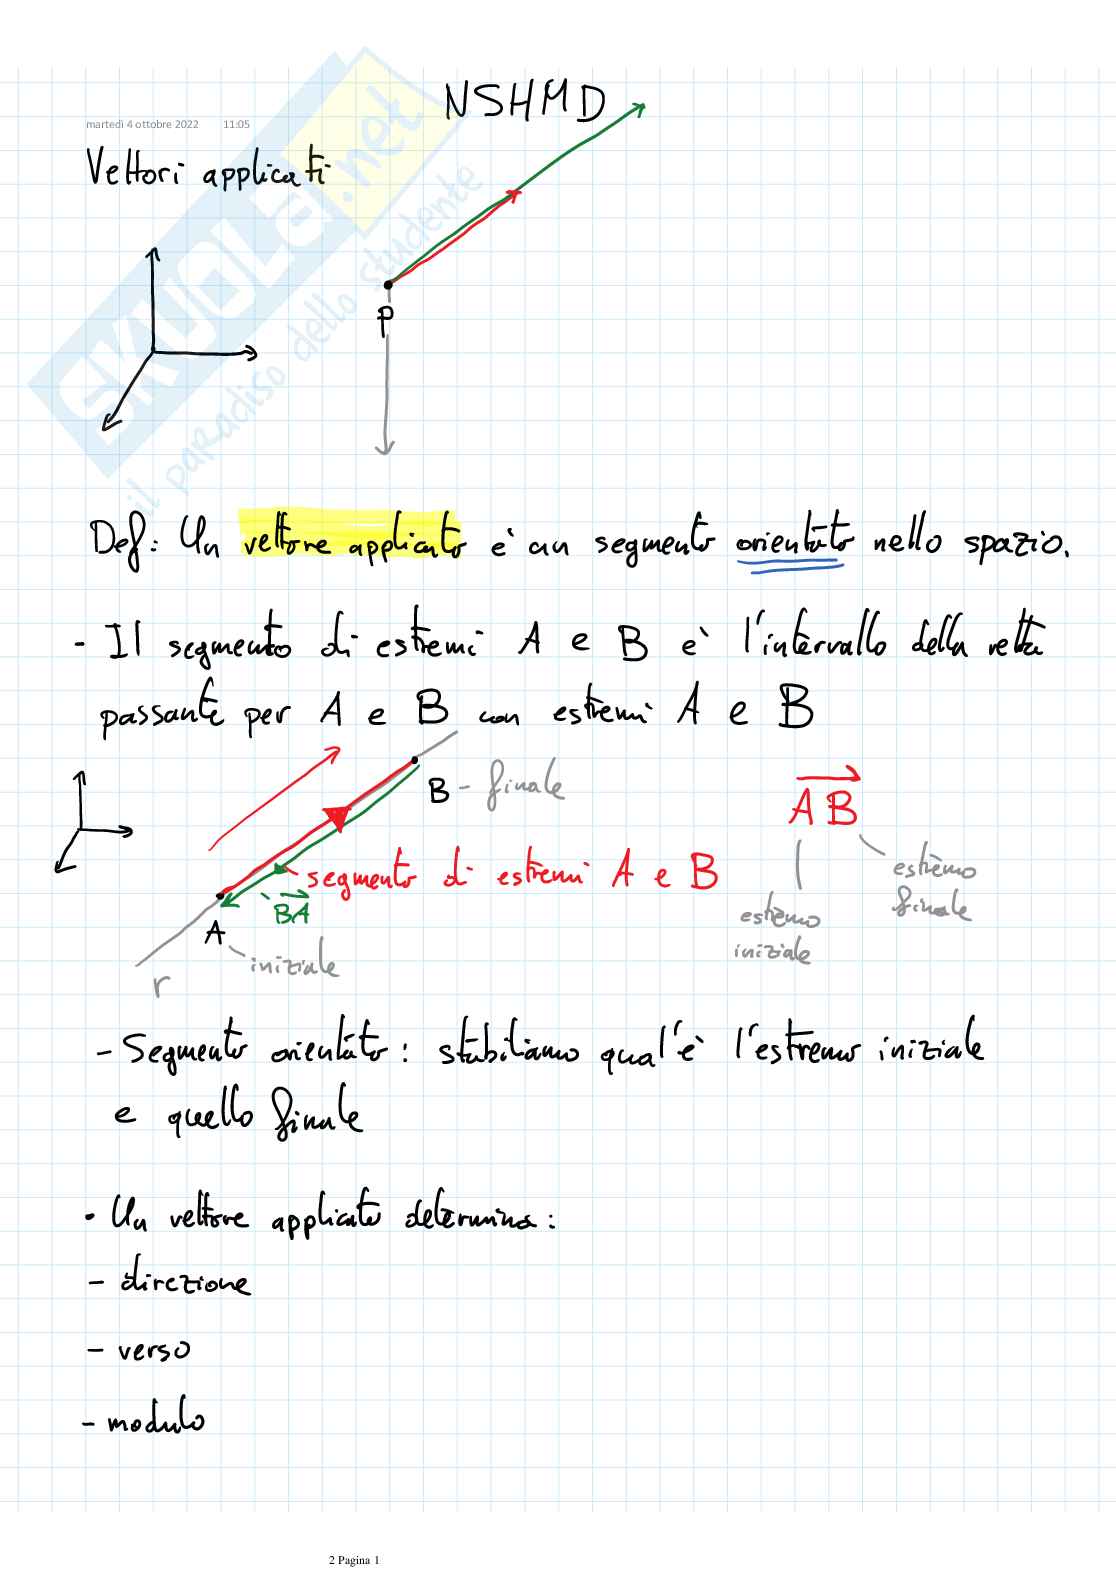 NSHMD
martedì 4 ottobre 2022 11:05
Vettori applicati
SKUOLA.net
il paradiso dello studente
P
Def: Un vettore applicato è un segmento orientato nello spazio.
- Il segmento di estremi A e B è l'intervallo della retta
passante per A e B con estremi A e B
B - finale
AB
segmento di estremi A e B
estremo
finale
BA
estremo
iniziale
A
iniziale
r
- Segmento orientato: stabiliamo qual'è l'estremo iniziale
e quello finale
• Un vettore applicato determina:
- direzione
- verso
- modulo
2 Pagina 1